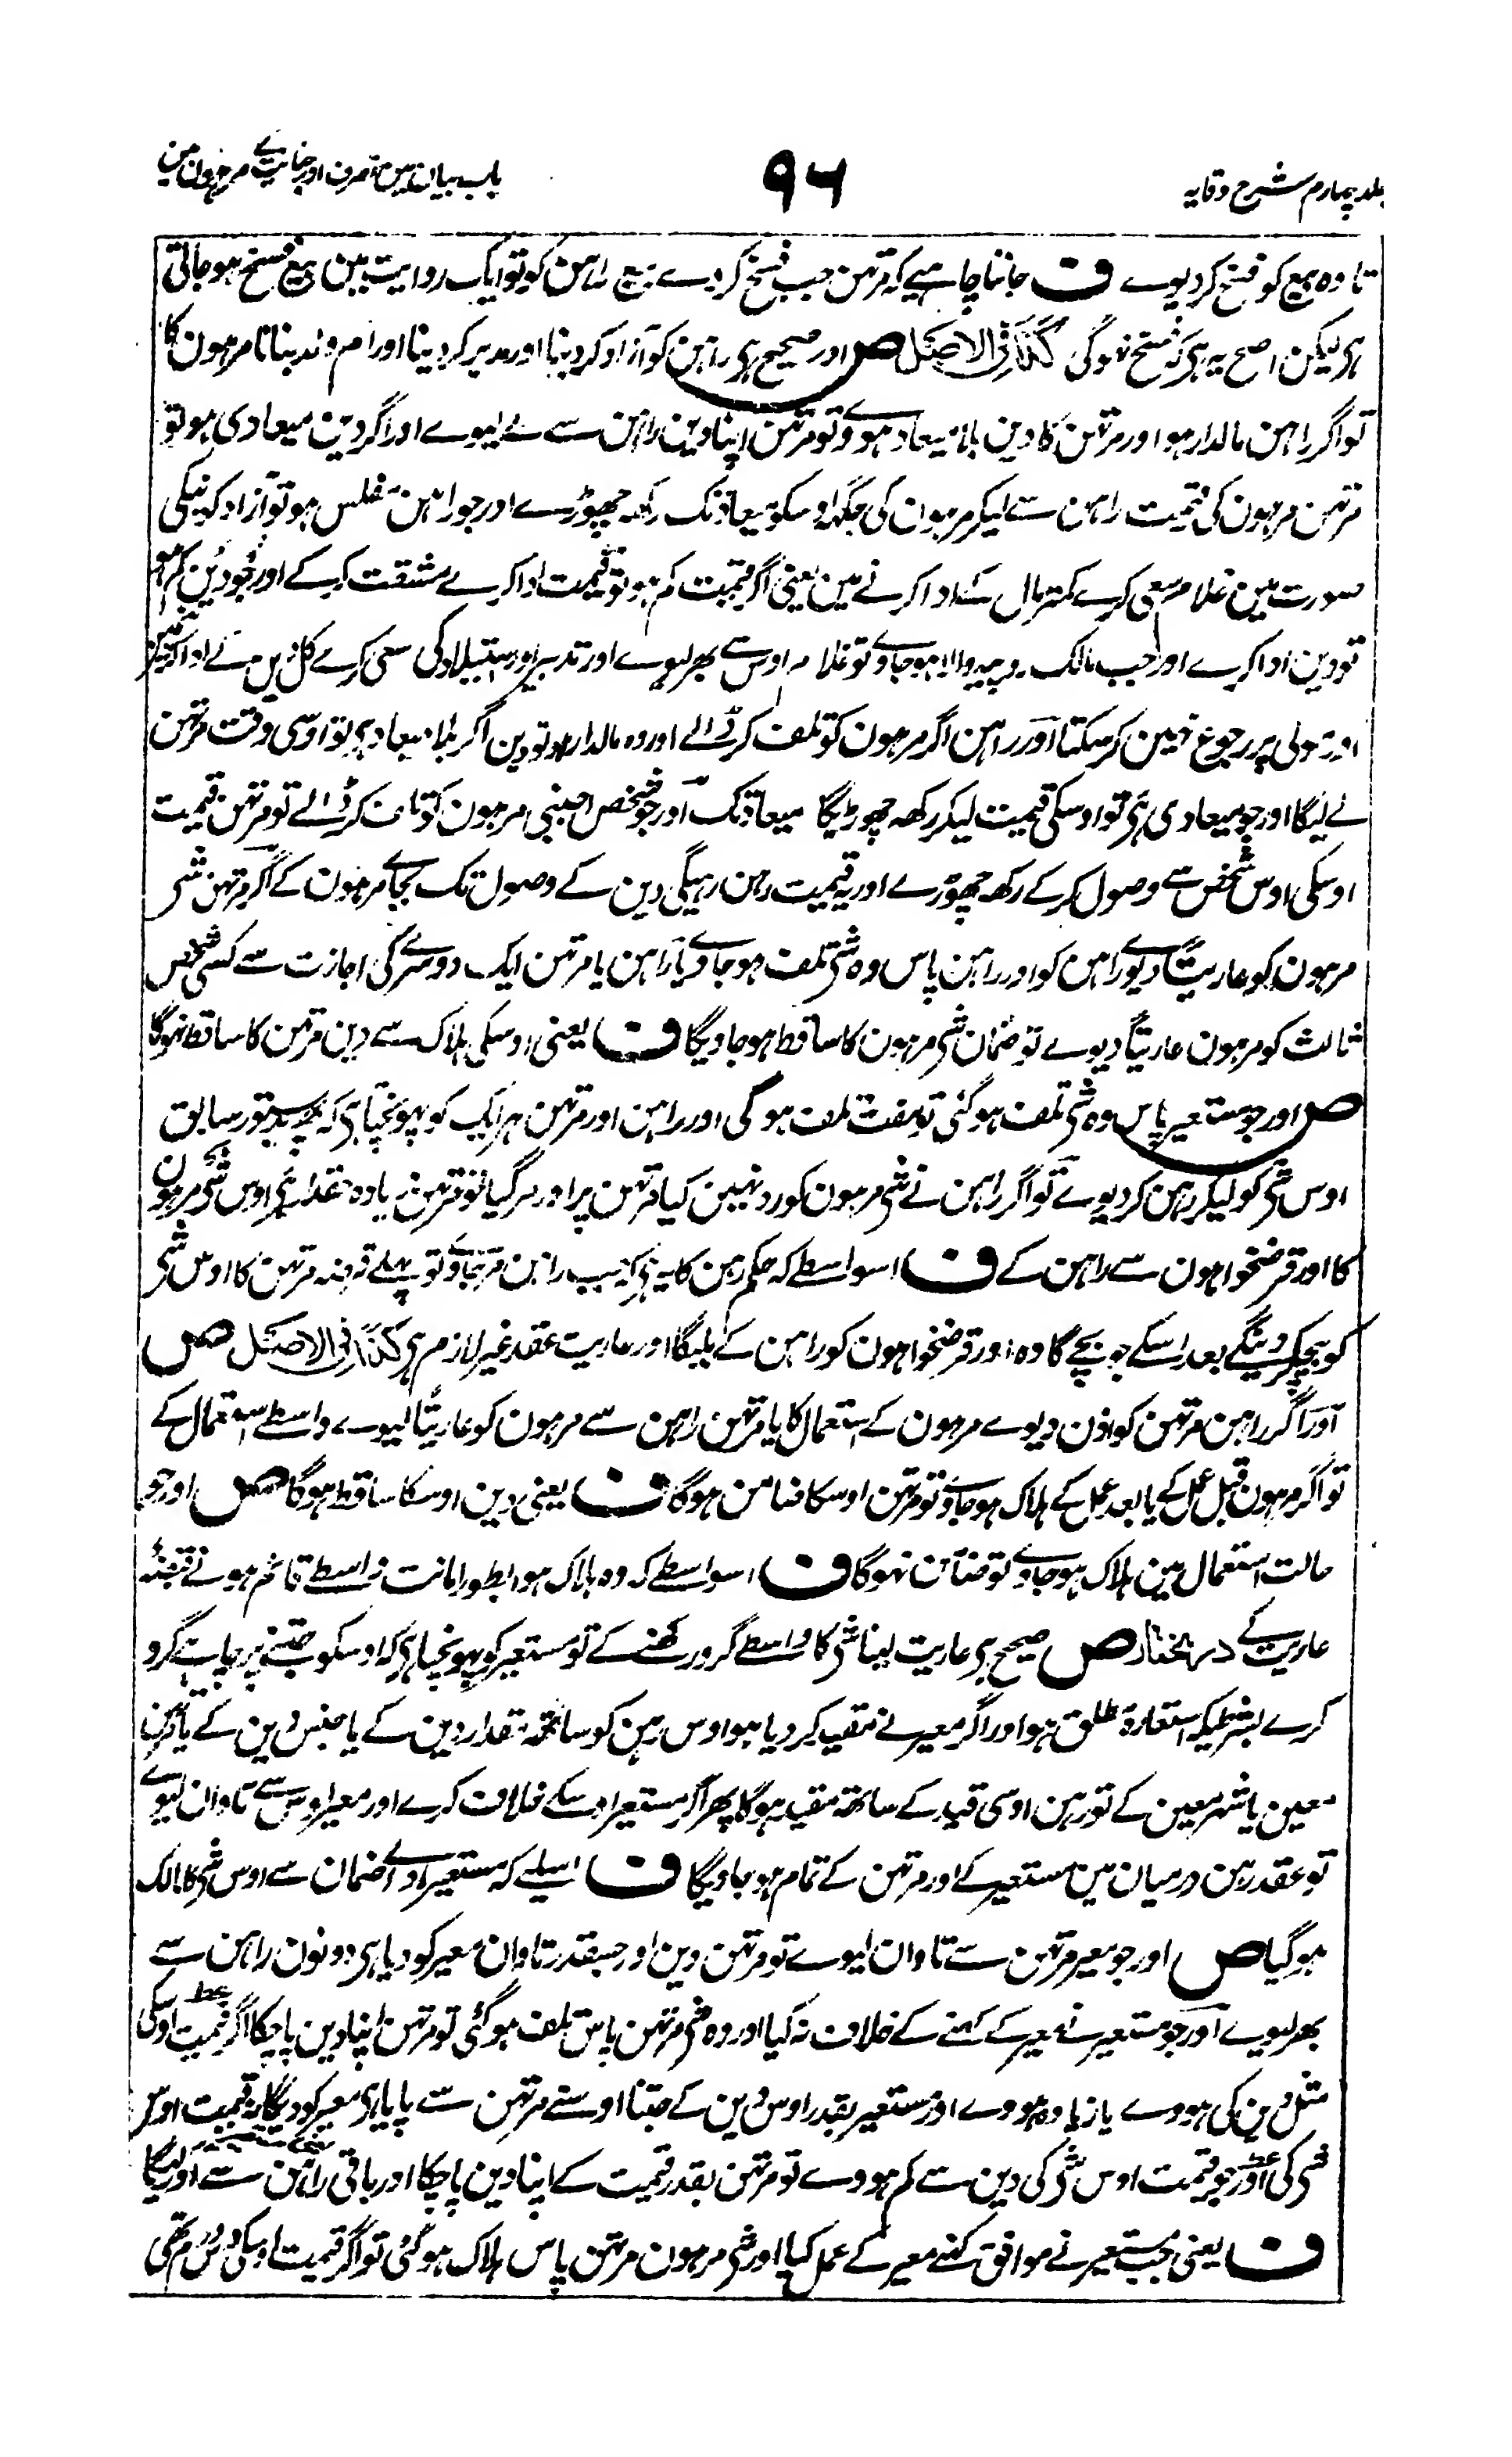 جلد چہارم شرح وقایہ
۹۶
باب بیان مین تصرف اور جنایت کے مرہون مین
تا وہ بیع کو فسخ کر دیوے ف جاننا چاہیے کہ مرتہن جب فسخ کر دے بیع راہن کو تو ایک روایت مین بیع فسخ ہو جاتی
ہی لیکن اصح یہ ہی کہ فسخ نہوگی کذا فی الاصل ص اور صحیح ہی راہن کو آزاد کر دینا اور مدبر کر دینا اور ام ولد بنانا مرہون کا
تو اگر راہن مالدار ہو اور مرتہن کا دین بلا میعاد ہووے تو مرتہن اپنا دین راہن سے لے لیوے اور اگر دین میعادی ہو تو
مرتہن مرہون کی قیمت راہن سے لیکر مرہون کی جگہ اوسکو میعاد تک رکھ چھوڑے اور جو راہن مفلس ہو تو آزاد کرنیکی
صورت مین غلام سعی کرے کمتر مال کے ادا کرنے مین یعنی اگر قیمت کم ہو تو قیمت ادا کرے مشقت کر کے اور جو دین کم ہو
تو دین ادا کرے اور جب مالک روپیہ والا ہو جاوے تو غلام اوس سے بھر لیوے اور تدبیر اور استیلاد کی سعی کرے کل دین کے ادا کرنے مین
اور مولی پر رجوع نہین کر سکتا اور راہن اگر مرہون کو تلف کر ڈالے اور وہ مالدار ہو تو دین اگر بلا میعاد ہی تو اوسی وقت مرتہن
لے لیگا اور جو میعادی ہی تو اوسکی قیمت لیکر رکھ چھوڑیگا میعاد تک اور جو شخص اجنبی مرہون کو تلف کر ڈالے تو مرتہن قیمت
اوسکی اوس شخص سے وصول کر کے رکھ چھوڑے اور یہ قیمت رہن رہیگی دین کے وصول تک بجاے مرہون کے اگر مرتہن شی
مرہون کو عاریتًا دیوے راہن کو اور راہن پاس وہ شی تلف ہو جاوے یا راہن یا مرتہن ایک دوسرے کی اجازت سے کسی شخص
ثالث کو مرہون عاریتًا دیوے تو ضمان شی مرہون کا ساقط ہو جاویگا ف یعنی اوسکی ہلاک سے دین مرتہن کا ساقط نہوگا
ص اور جو مستعیر پاس وہ شی تلف ہو گئی تو مفت تلف ہو گی اور راہن اور مرتہن ہر ایک کو پہونچتا ہی کہ پھر بدستور سابق
اوس شی کو لیکر رہن کر دیوے تو اگر راہن نے شی مرہون کو رد نہین کیا مرتہن پر اور مر گیا تو مرتہن زیادہ حقدار ہی اوس شی مرہون
کا اور قرضخواہون سے راہن کے ف اسواسطے کہ حکم رہن کا یہ ہی کہ جب راہن مر جاوے تو پہلے قرضہ مرتہن کا اوس شی
کو بیچکر دینگے بعد اسکے جو بچے گا وہ اور قرضخواہون کو راہن کے ملیگا اور عاریت عقد غیر لازم ہی کذا فی الاصل ص
اور اگر راہن مرتہن کو اذن دیوے مرہون کے استعمال کا یا مرتہن راہن سے مرہون کو عاریتًا لیوے واسطے استعمال کے
تو اگر مرہون قبل عمل کے یا بعد عمل کے ہلاک ہو جاوے تو مرتہن اوسکا ضامن ہوگا ف یعنی دین اوسکا ساقط ہوگا ص اور جو
حالت استعمال مین ہلاک ہو جاوے تو ضامن نہوگا ف اسواسطے کہ وہ ہلاک ہوا بطور امانت واسطے قائم ہونے قبضۂ
عاریت کے در المختار ص صحیح ہی عاریت لینا شی کا واسطے گرو رکھنے کے تو مستعیر کو پہونچتا ہی کہ اوسکو جتنے پر چاہے گرو
کرے بشرطیکہ استعارۃ مطلق ہو اور اگر معیر نے مقید کر دیا ہو اوس رہن کو ساتھ مقدار دین کے یا جنس دین کے یا مرتہن
معین یا شہر معین کے تو رہن اوسی قید کے ساتھ مقید ہوگا پھر اگر مستعیر اوسکے خلاف کرے اور معیر اوس سے تاوان لیوے
تو عقد رہن درمیان مین مستعیر کے اور مرتہن کے تمام ہو جاویگا ف اسلیے کہ مستعیر اداے ضمان سے اوس شی کا مالک
ہو گیا ص اور جو معیر مرتہن سے تاوان لیوے تو مرتہن دین اور جسقدر تاوان معیر کو دیا ہی دونون راہن سے
بھر لیوے اور جو مستعیر نے معیر کے کہنے کے خلاف نہ کیا اور وہ شی مرتہن پاس تلف ہو گئی تو مرتہن اپنا دین پا چکا اگر قیمت اوسکی
مثل دین کی ہووے یا زیادہ ہووے اور مستعیر بقدر اوس دین کے جتنا اوسنے مرتہن سے پایا ہی معیر کو دیگا نہ قیمت اوس
شی کی اور جو قیمت اوس شی کی دین سے کم ہووے تو مرتہن بقدر قیمت کے اپنا دین پا چکا اور باقی راہن سے اور لیگا
ف یعنی جب مستعیر نے موافق کہنے معیر کے عمل کیا اور شی مرہون مرتہن پاس ہلاک ہو گئی تو اگر قیمت اوسکی دس درم تھی